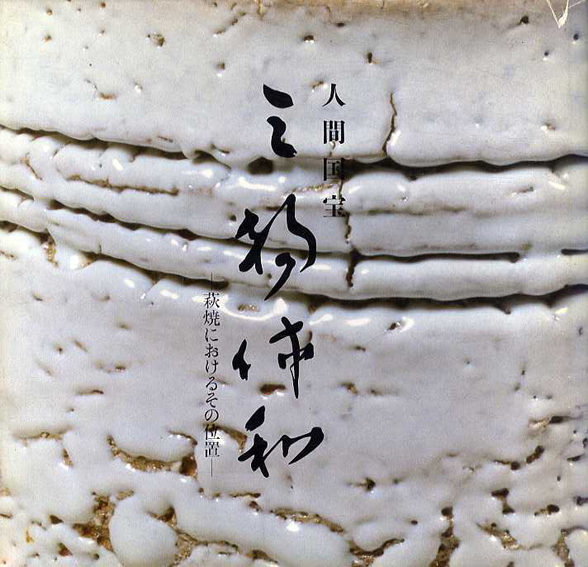 人間国宝
三輪休和
―萩焼におけるその位置―